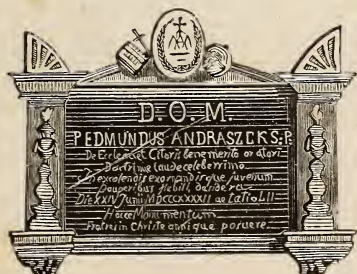 D. O. M.
P. EDMUNDUS ANDRASZCK S: P.
De Ecclesia et Citaris benemerito oratori
Doctrinae laude celeberrimo
In excolendis exornandisque juvenum
Pauperibus flebili desidera
Die XXIV Junii MDCCCXXXXII ae tatis LII
Hocce Monumentum
Fratres in Christo amici que posuere.